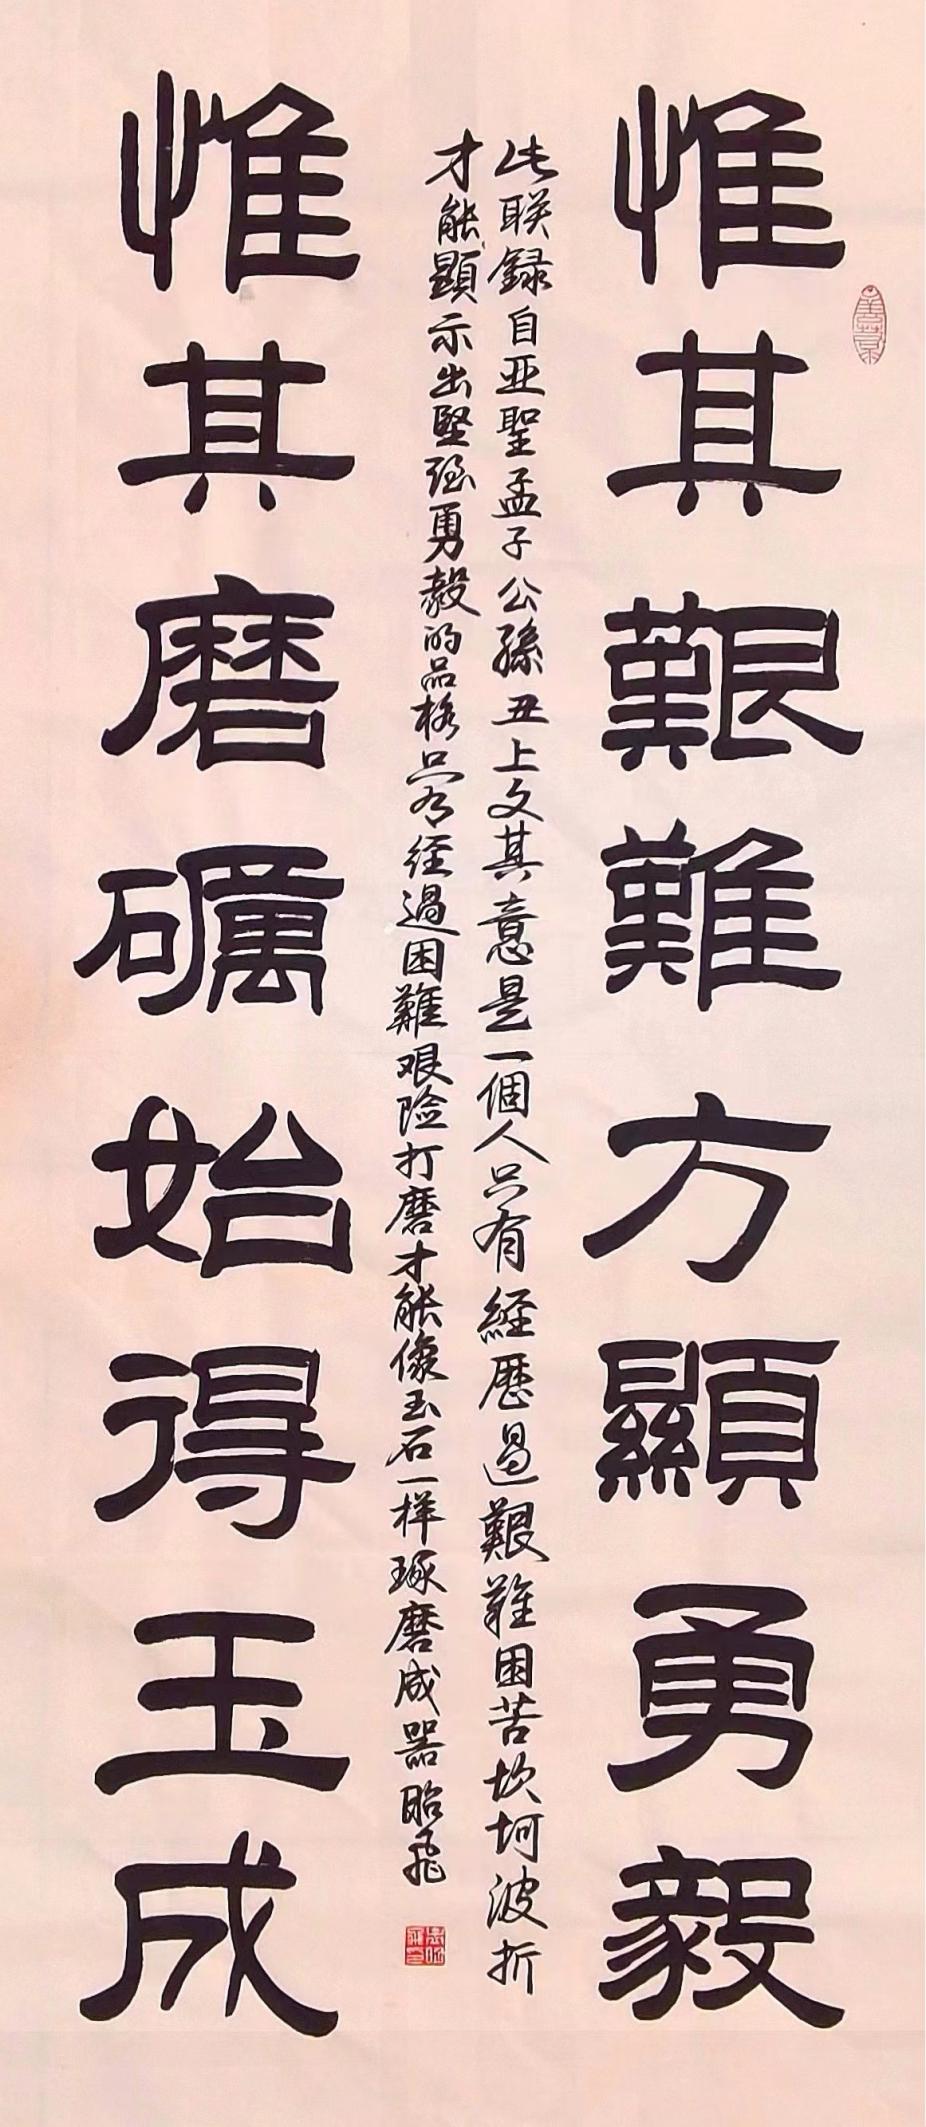 惟其艱難方顯勇毅
此联録自亚聖孟子公孫丑上文其意是一個人只有経歷過艱難困苦坎坷波折
才能顯示出堅强勇毅的品格只有经過困難艰险打磨才能像玉石一样琢磨成器昭飛
惟其磨礪始得玉成